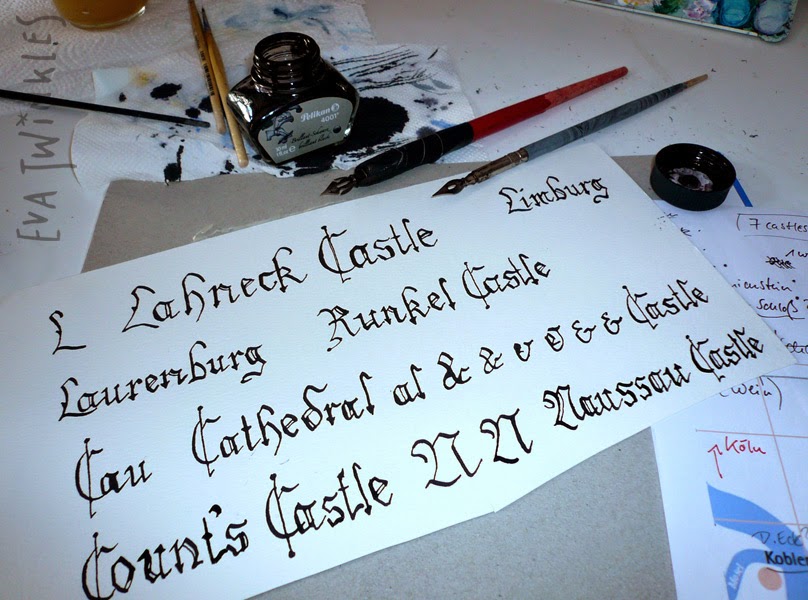 EVA TWiNKLES
Pelikan
4001
L Lahneck Castle Limburg
Laurenburg Runkel Castle
Cau Cathedral al & & & & & & Castle
Count's Castle N N Naussau Castle
7 castles
(Wein)
Köln
D.Eck
Koblen